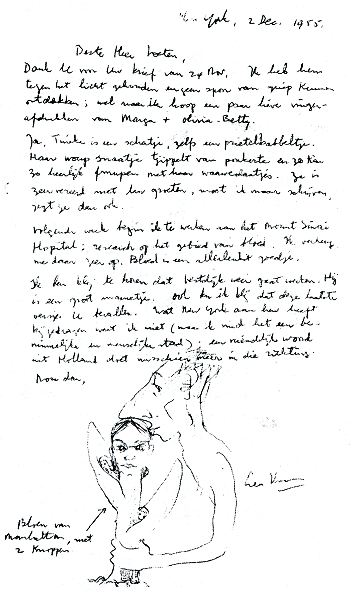 York, 2 Dec. 1955.
Beste Heer
Dank U voor Uw brief van 24 Nov. Ik heb hem
tegen het licht gehouden en geen spoor van griep kunnen
ontdekken; wel maar ik hoop een paar lieve vinger-
afdrukken van Marga + Olivia-Betty.
Ja, Tinike is een schatje, zelfs een
Haar snaartje trippelt van en ze kan
zo heerlijk met haar Ze is
zeer vereerd met Uw groeten, moet ik maar schrijven,
zegt ze dan ook.
Volgende week begin ik te werken aan het Mount Sinai
Hospital; research op het gebied van bloed. Ik verheug
me daar zeer op. Bloed is een allerleukst goedje.
Ik ben blij te horen dat weer gaat werken. Hij
is een groot Ook ben ik blij dat deze laatste
versje U bevallen. Wat New York aan hen heeft
bijgedragen weet ik niet (maar ik vind het een be-
minnelijke en menselijke stad); een vriendelijk woord
uit Holland doet misschien meer in die richting.
Nou dan,
Leo
Bloem van
manhattan, met
2 knoppen